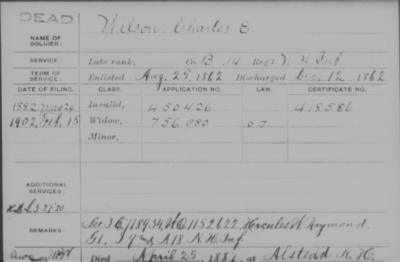 DEAD
NAME OF SOLDIER: Wilson Charles E
SERVICE: Late rank, Co. B, 14 Reg't N. H. Inf
TERM OF SERVICE: Enlisted Aug. 25, 1862 Discharged Dec. 12, 1862
DATE OF FILING. CLASS. APPLICATION NO. LAW. CERTIFICATE NO.
1882 24 Invalid, 450426 418586
1902 Feb. 15 Widow, 756080
Minor,
ADDITIONAL SERVICES:
REMARKS: 1152622 Hercules W Raymond
G1. A18 N.H. Inf
Died April 25, at Alstead N. H.